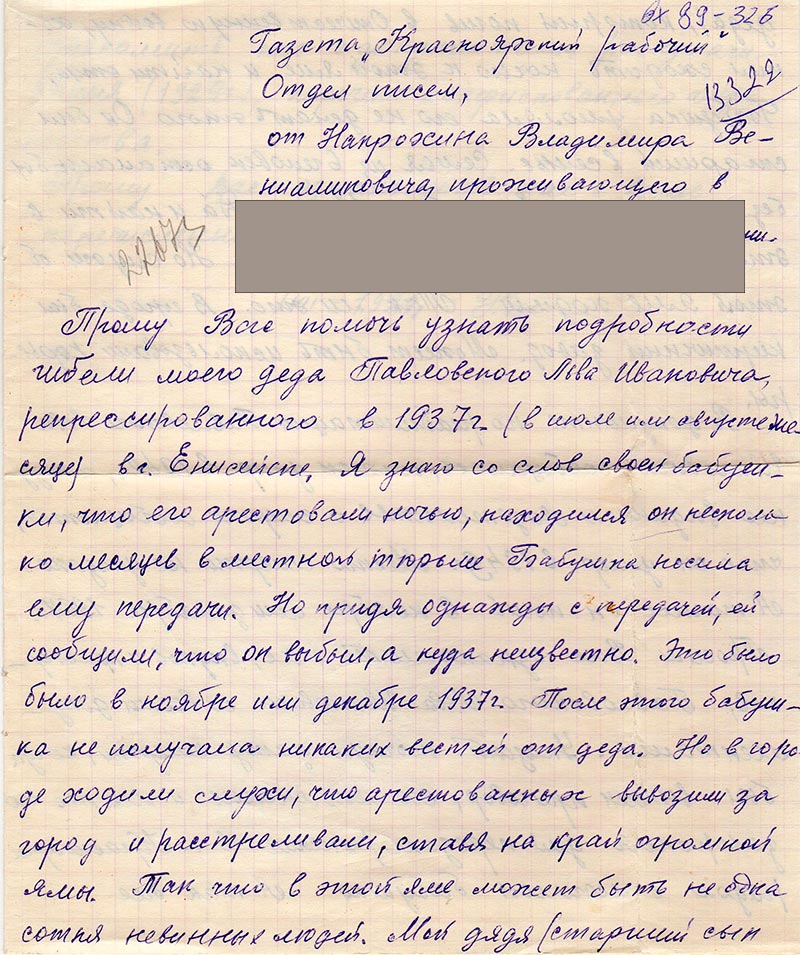 вх 89-326
Газета „Красноярский рабочий"
Отдел писем,
13322
от Напрюхина Владимира Ве-
ниаминовича, проживающего в
Прошу Вас помочь узнать подробности
гибели моего деда Павловского Льва Ивановича,
репрессированного в 1937г (в июле или августе ме-
сяце) в г. Енисейске, Я знаю со слов своей бабуш-
ки, что его арестовали ночью, находился он несколь
ко месяцев в местной тюрьме Бабушка носила
ему передачи. Но придя однажды с передачей, ей
сообщили, что он выбыл, а куда неизвестно. Это было
было в ноябре или декабре 1937г. После этого бабуш-
ка не получала никаких вестей от деда. Но в горо
де ходили слухи, что арестованных вывозили за
город и расстреливали, ставя на край огромной
ямы. Так что в этой яме может быть не одна
сотня невинных людей. Мой дядя (старший сын